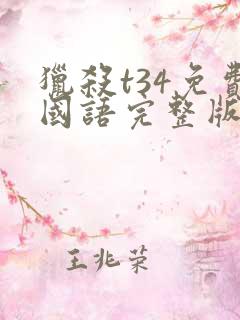 獵殺t34免費
國語完整版
王兆荣